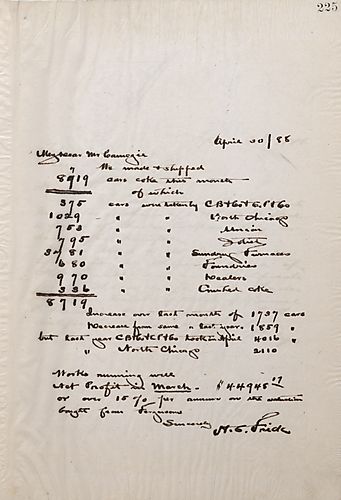 225
April 30/88
My dear Mr Carnegie
We made & shipped
8719 cars coke this month
of which
375 cars were
1029 " " North Chicago
753 " " Union
795 " " Joliet
" " Sundry Furnaces
680 " " Foundries
970 " " Dealers
336 " " Crushed coke
8719
Increase over last month of 1737 cars
Decrease from same a last year 1859 "
but last year took in April 4016 "
" North Chicago 2110
Works running well
Net Profit in March - $44945
or over 15% per annum on the
bought from Ferguson
Sincerely
H. C. Frick